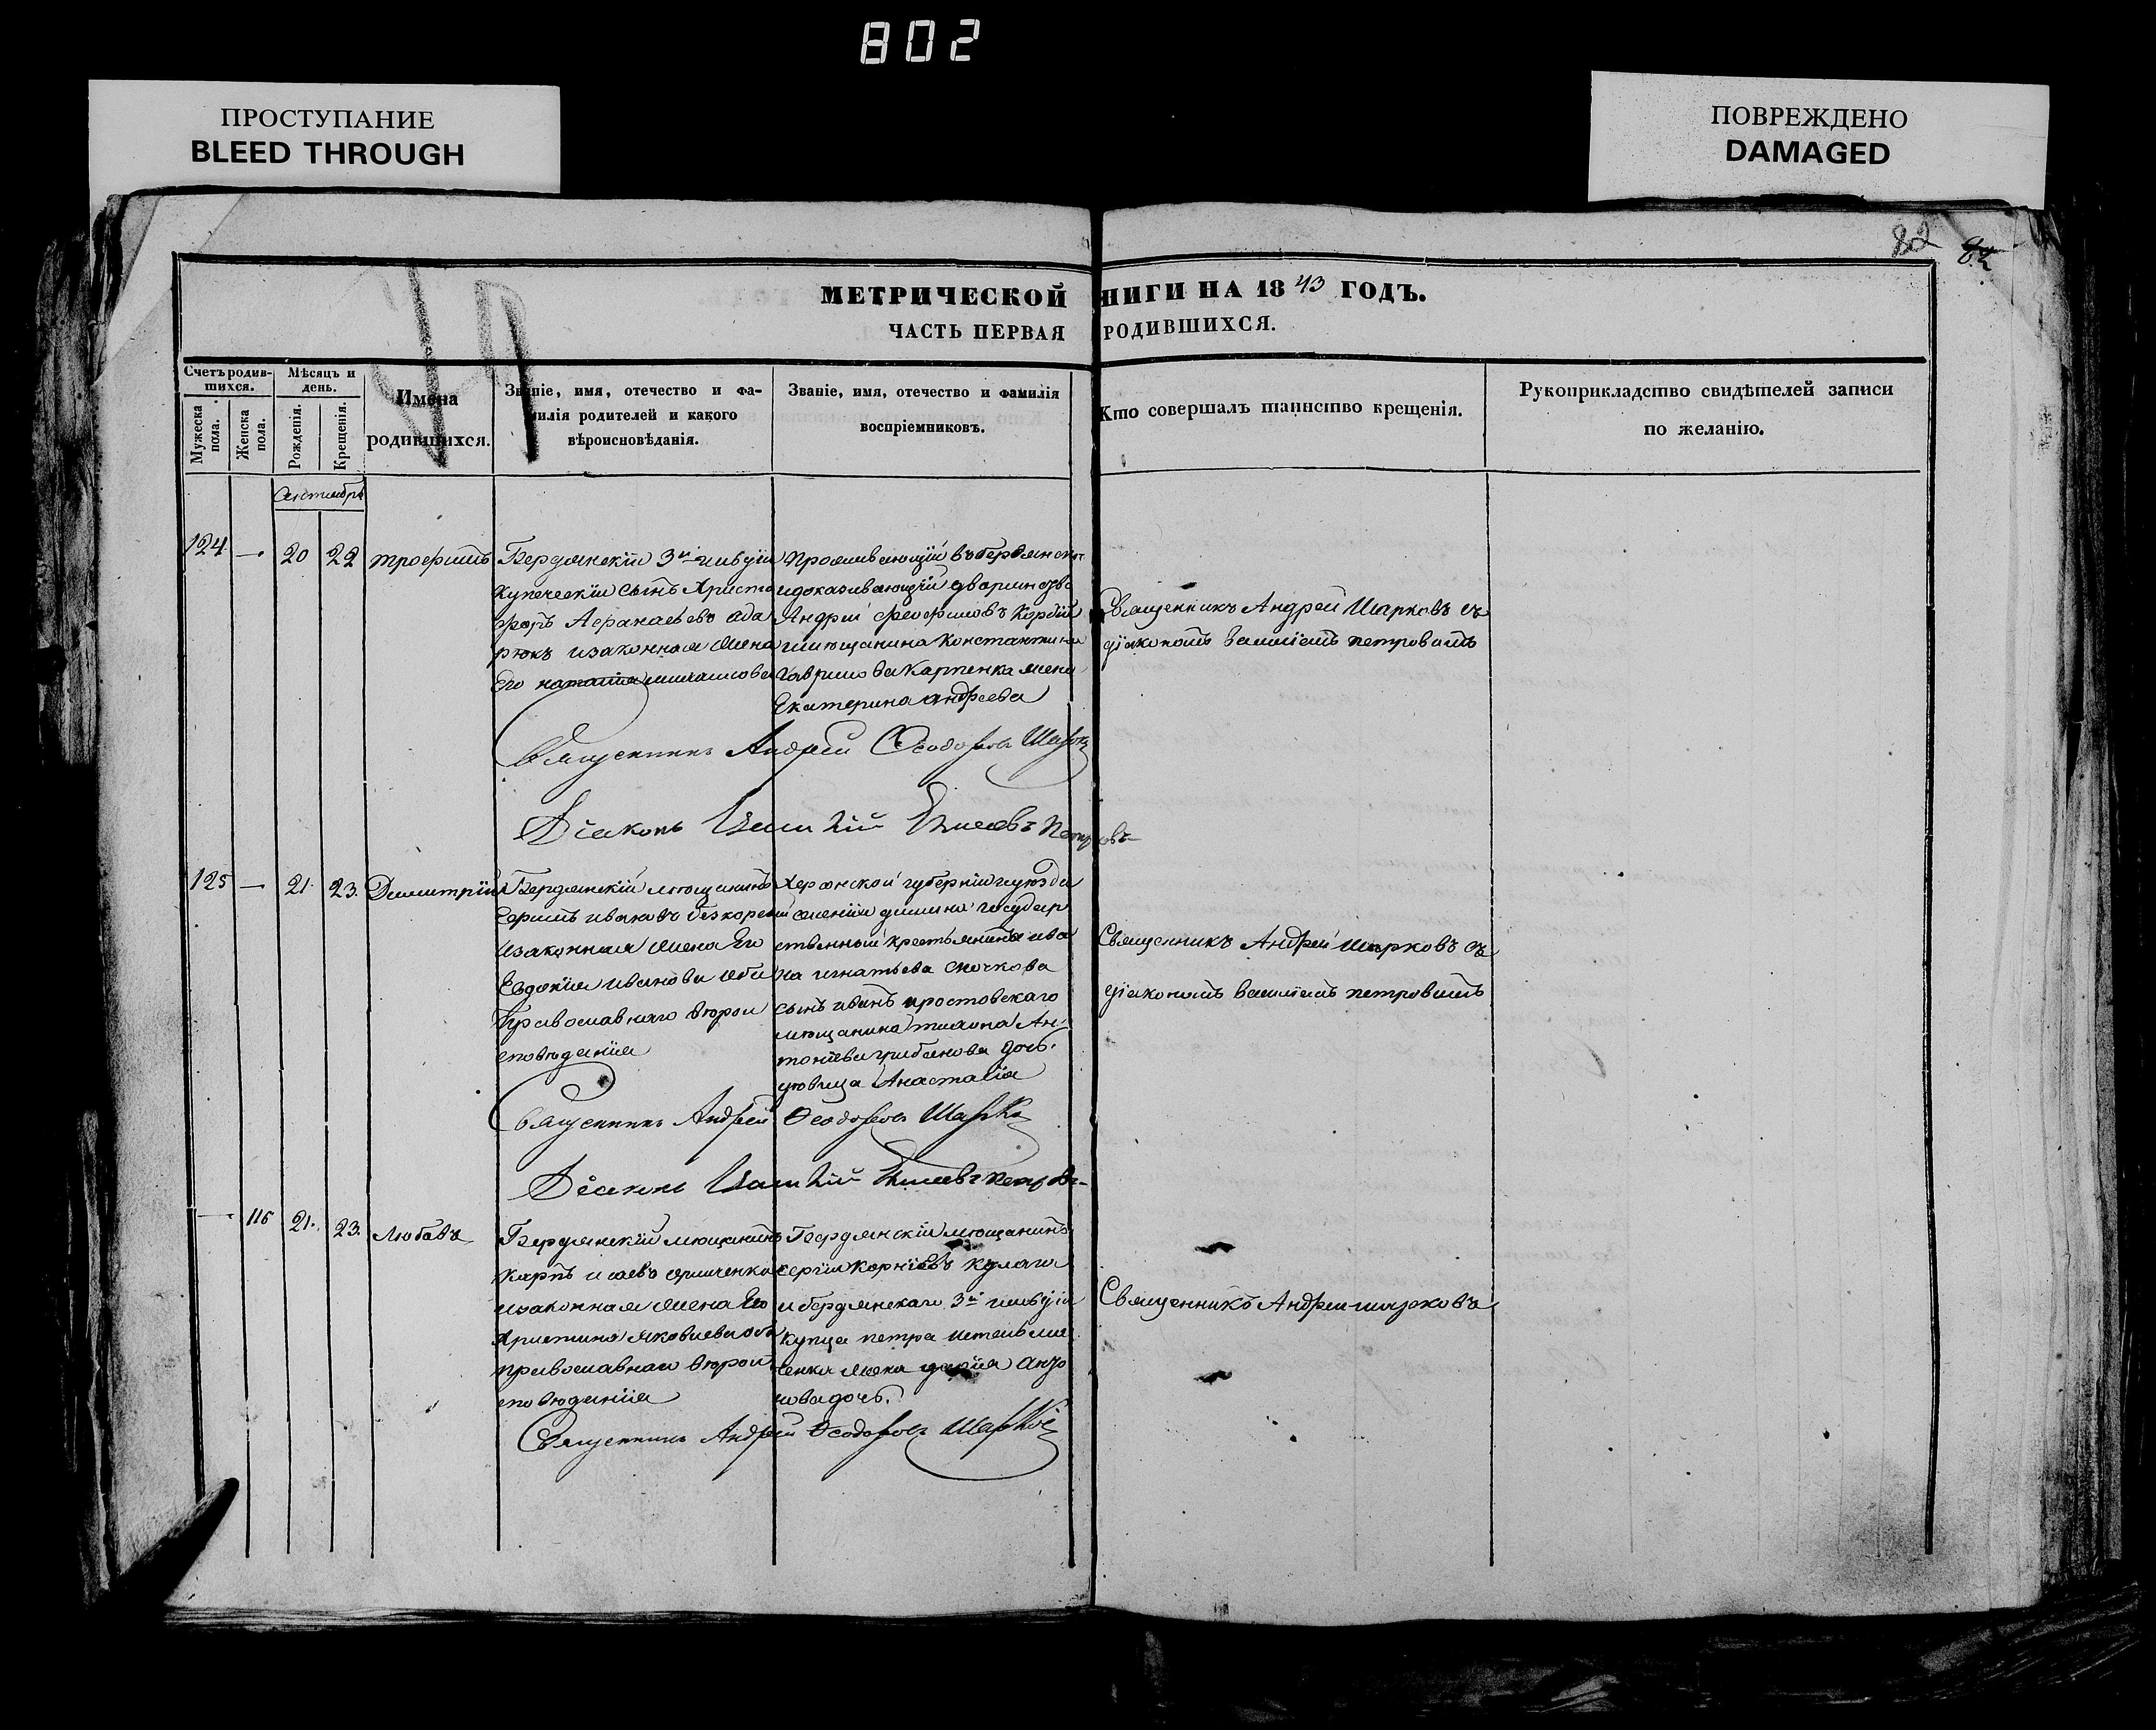 802
ПРОСТУПАНИЕ
BLEED THROUGH
ПОВРЕЖДЕНО
DAMAGED
82 82
МЕТРИЧЕСКОЙ НИГИ НА 1843 ГОДЪ.
ЧАСТЬ ПЕРВАЯ РОДИВШИХСЯ.
Счетъ родив-
шихся.
Мужеска пола.
Женска пола.
Мѣсяцъ и
день.
Рожденія.
Крещенія.
Имена
родившихся.
Званіе, имя, отечество и фа-
милія родителей и какого
вѣроисповѣданія.
Званіе, имя, отечество и фамилія
воспріемниковъ.
Кто совершалъ таинство крещенія.
Рукоприкладство свидѣтелей записи
по желанію.
Сентябрь
124 — 20 22 трофимъ
Бердянскій 3й гильдіи
купеческій сынъ Христо
форъ Афанасьевъ
изаконная жена
Его
Проживающій въ бердянск
идоказывающій дворянство
Андрей феофиловъ
имѣщанина Константина
Гаврилова Карпенка жена
Екатерина андреева
Священникъ Андрей Шарковъ съ
діакономъ василіемъ петровымъ
Священникъ Андрей Ѳеодоровъ Шарковъ
Діаконъ Василій Петровъ
125 — 21. 23. Димитрій
Бердянскій мѣщанинъ
ивановъ
изаконная жена Его
Евдокія иванова оба
Православнаго вѣрои
сповѣданія
Херсонской губерніи иуѣзда
селенія государ
ственный крестьянина ива
на игнатьева
сынъ иванъ иростовскаго
мѣщанина Ан-
тоніева грибанова дочь.
дѣвица Анастасія
Священникъ Андрей Шарковъ съ
діакономъ василіемъ петровымъ
Священникъ Андрей Ѳеодоровъ Шарковъ
Діаконъ Василій Петровъ
— 116 21. 23. Любовъ
Бердянскій мѣщанинъ
Карпъ
изаконная жена Его
Христина яковлева оба
православнаго вѣрои
сповѣданія
Бердянскій мѣщанинъ
сергій Корніевъ
и бердянскаго 3й гильдіи
купца петра
жена дарія
дочь.
Священникъ Андрей шарковъ
Священникъ Андрей Ѳеодоровъ Шарковъ